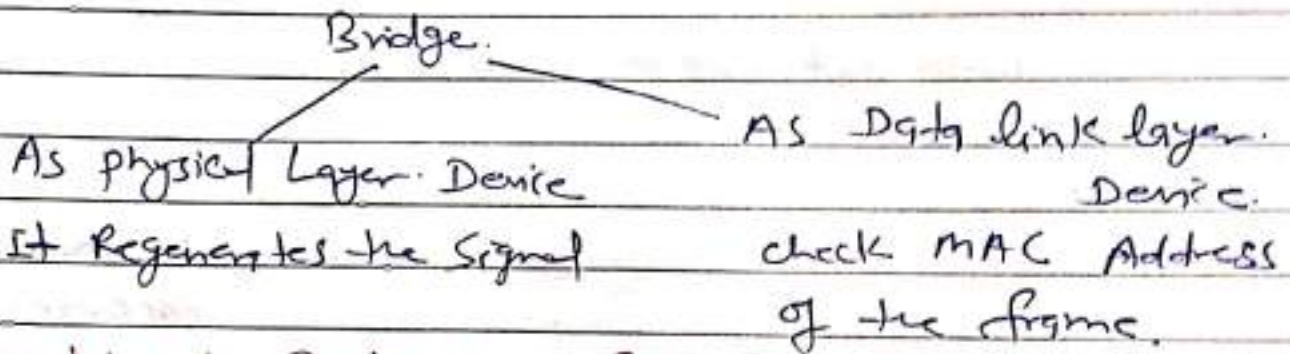 Bridge.
As physical Layer. Device
It Regenerates the Signal
As Data link layer.
Device.
check MAC Address
of the frame.